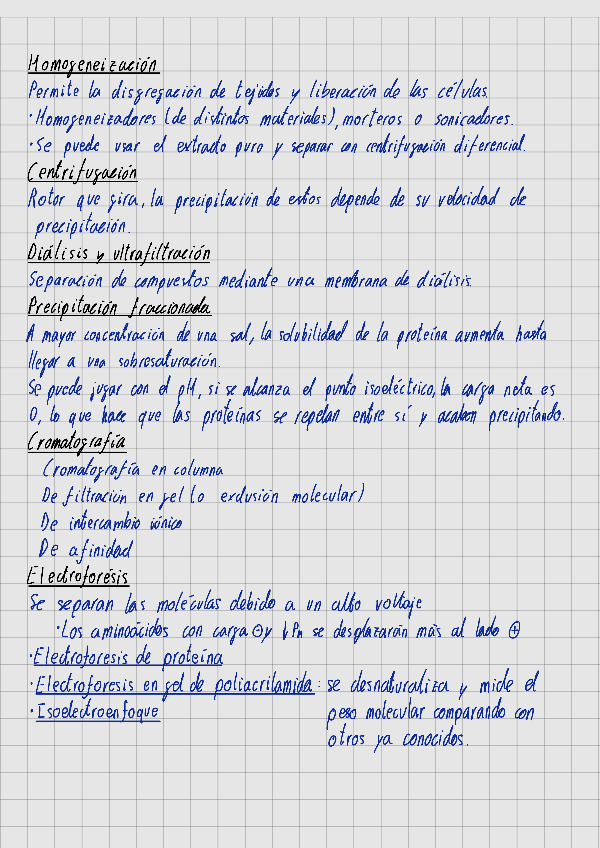 Homogeneización
Permite la disgregación de tejidos y liberación de las células.
·Homogeneizadores (de distintos materiales), morteros o sonicadores.
·Se puede usar el extracto puro y separar con centrifugación diferencial.
Centrifugación
Rotor que gira, la precipitación de estos depende de su velocidad de
precipitación.
Diálisis y ultrafiltración
Separación de compuestos mediante una membrana de diálisis.
Precipitación fraccionada
A mayor concentración de una sal, la solubilidad de la proteína aumenta hasta
llegar a una sobresaturación.
Se puede jugar con el pH, si se alcanza el punto isoeléctrico, la carga neta es
0, lo que hace que las proteínas se repelan entre sí y acaben precipitando.
Cromatografía
Cromatografía en columna
De filtración en gel (o exclusión molecular)
De intercambio iónico
De afinidad
Electroforésis
Se separan las moléculas debido a un alto voltaje
·Los aminoácidos con carga ⊖ y ↓Pm se desplazarán más al lado ⊕
·Electroforesis de proteína
·Electroforesis en gel de poliacrilamida: se desnaturaliza y mide el
·Isoelectroenfoque peso molecular comparando con
otros ya conocidos.